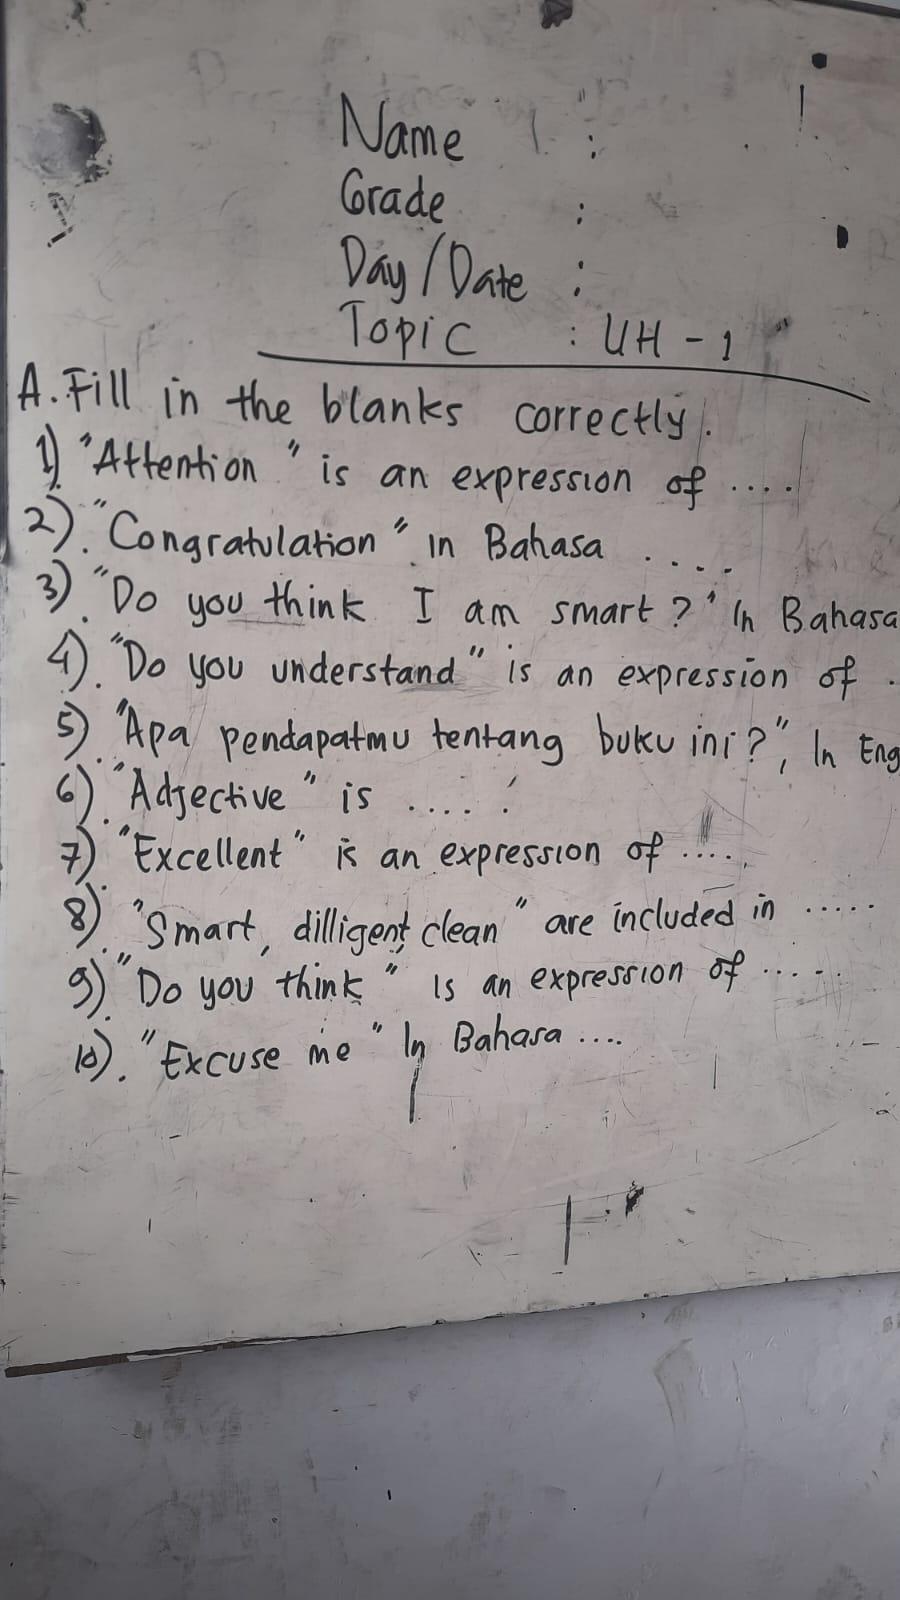 Name :
Grade :
Day/Date :
Topic : UH - 1
A. Fill in the blanks correctly.
1) "Attention" is an expression of ....
2). "Congratulation" in Bahasa ....
3). "Do you think I am smart?" In Bahasa
4). "Do you understand" is an expression of .
5). "Apa pendapatmu tentang buku ini?", In Eng
6). "Adjective" is .....
7) "Excellent" is an expression of .....
8). "Smart, dilligent, clean" are included in .....
9). "Do you think" Is an expression of .....
10). "Excuse me" In Bahasa ....